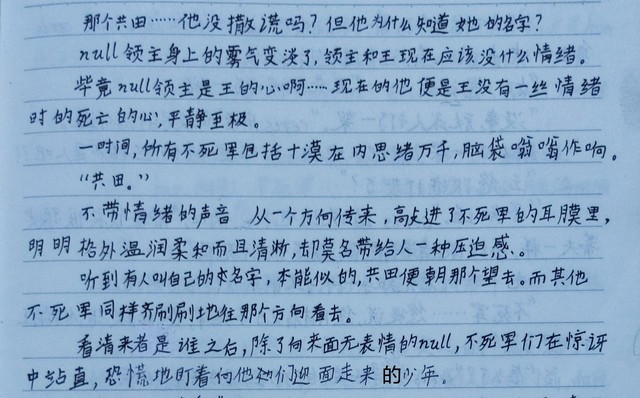 那个共田……他没撒谎吗？但他为什么知道她的名字？
null领主身上的雾气变淡了，领主和王现在应该没什么情绪。
毕竟null领主是王的心啊……现在的他便是王没有一丝情绪
时的死亡的心，平静至极。
一时间，所有不死军包括十漠在内思绪万千，脑袋嗡嗡作响。
“共田。”
不带情绪的声音 从一个方向传来，高点进了不死军的耳膜里，
明明格外温润柔和而且清淅，却莫名带给人一种压迫感。
听到有人叫自己的本名字，本能似的，共田便朝那个望去。而其他
不死军同样齐刷刷地往那个方向看去。
看清来者是谁之后，除了向来面无表情的null，不死军们在惊讶
中站直，恐慌地盯着向他她们迎面走来的少年。